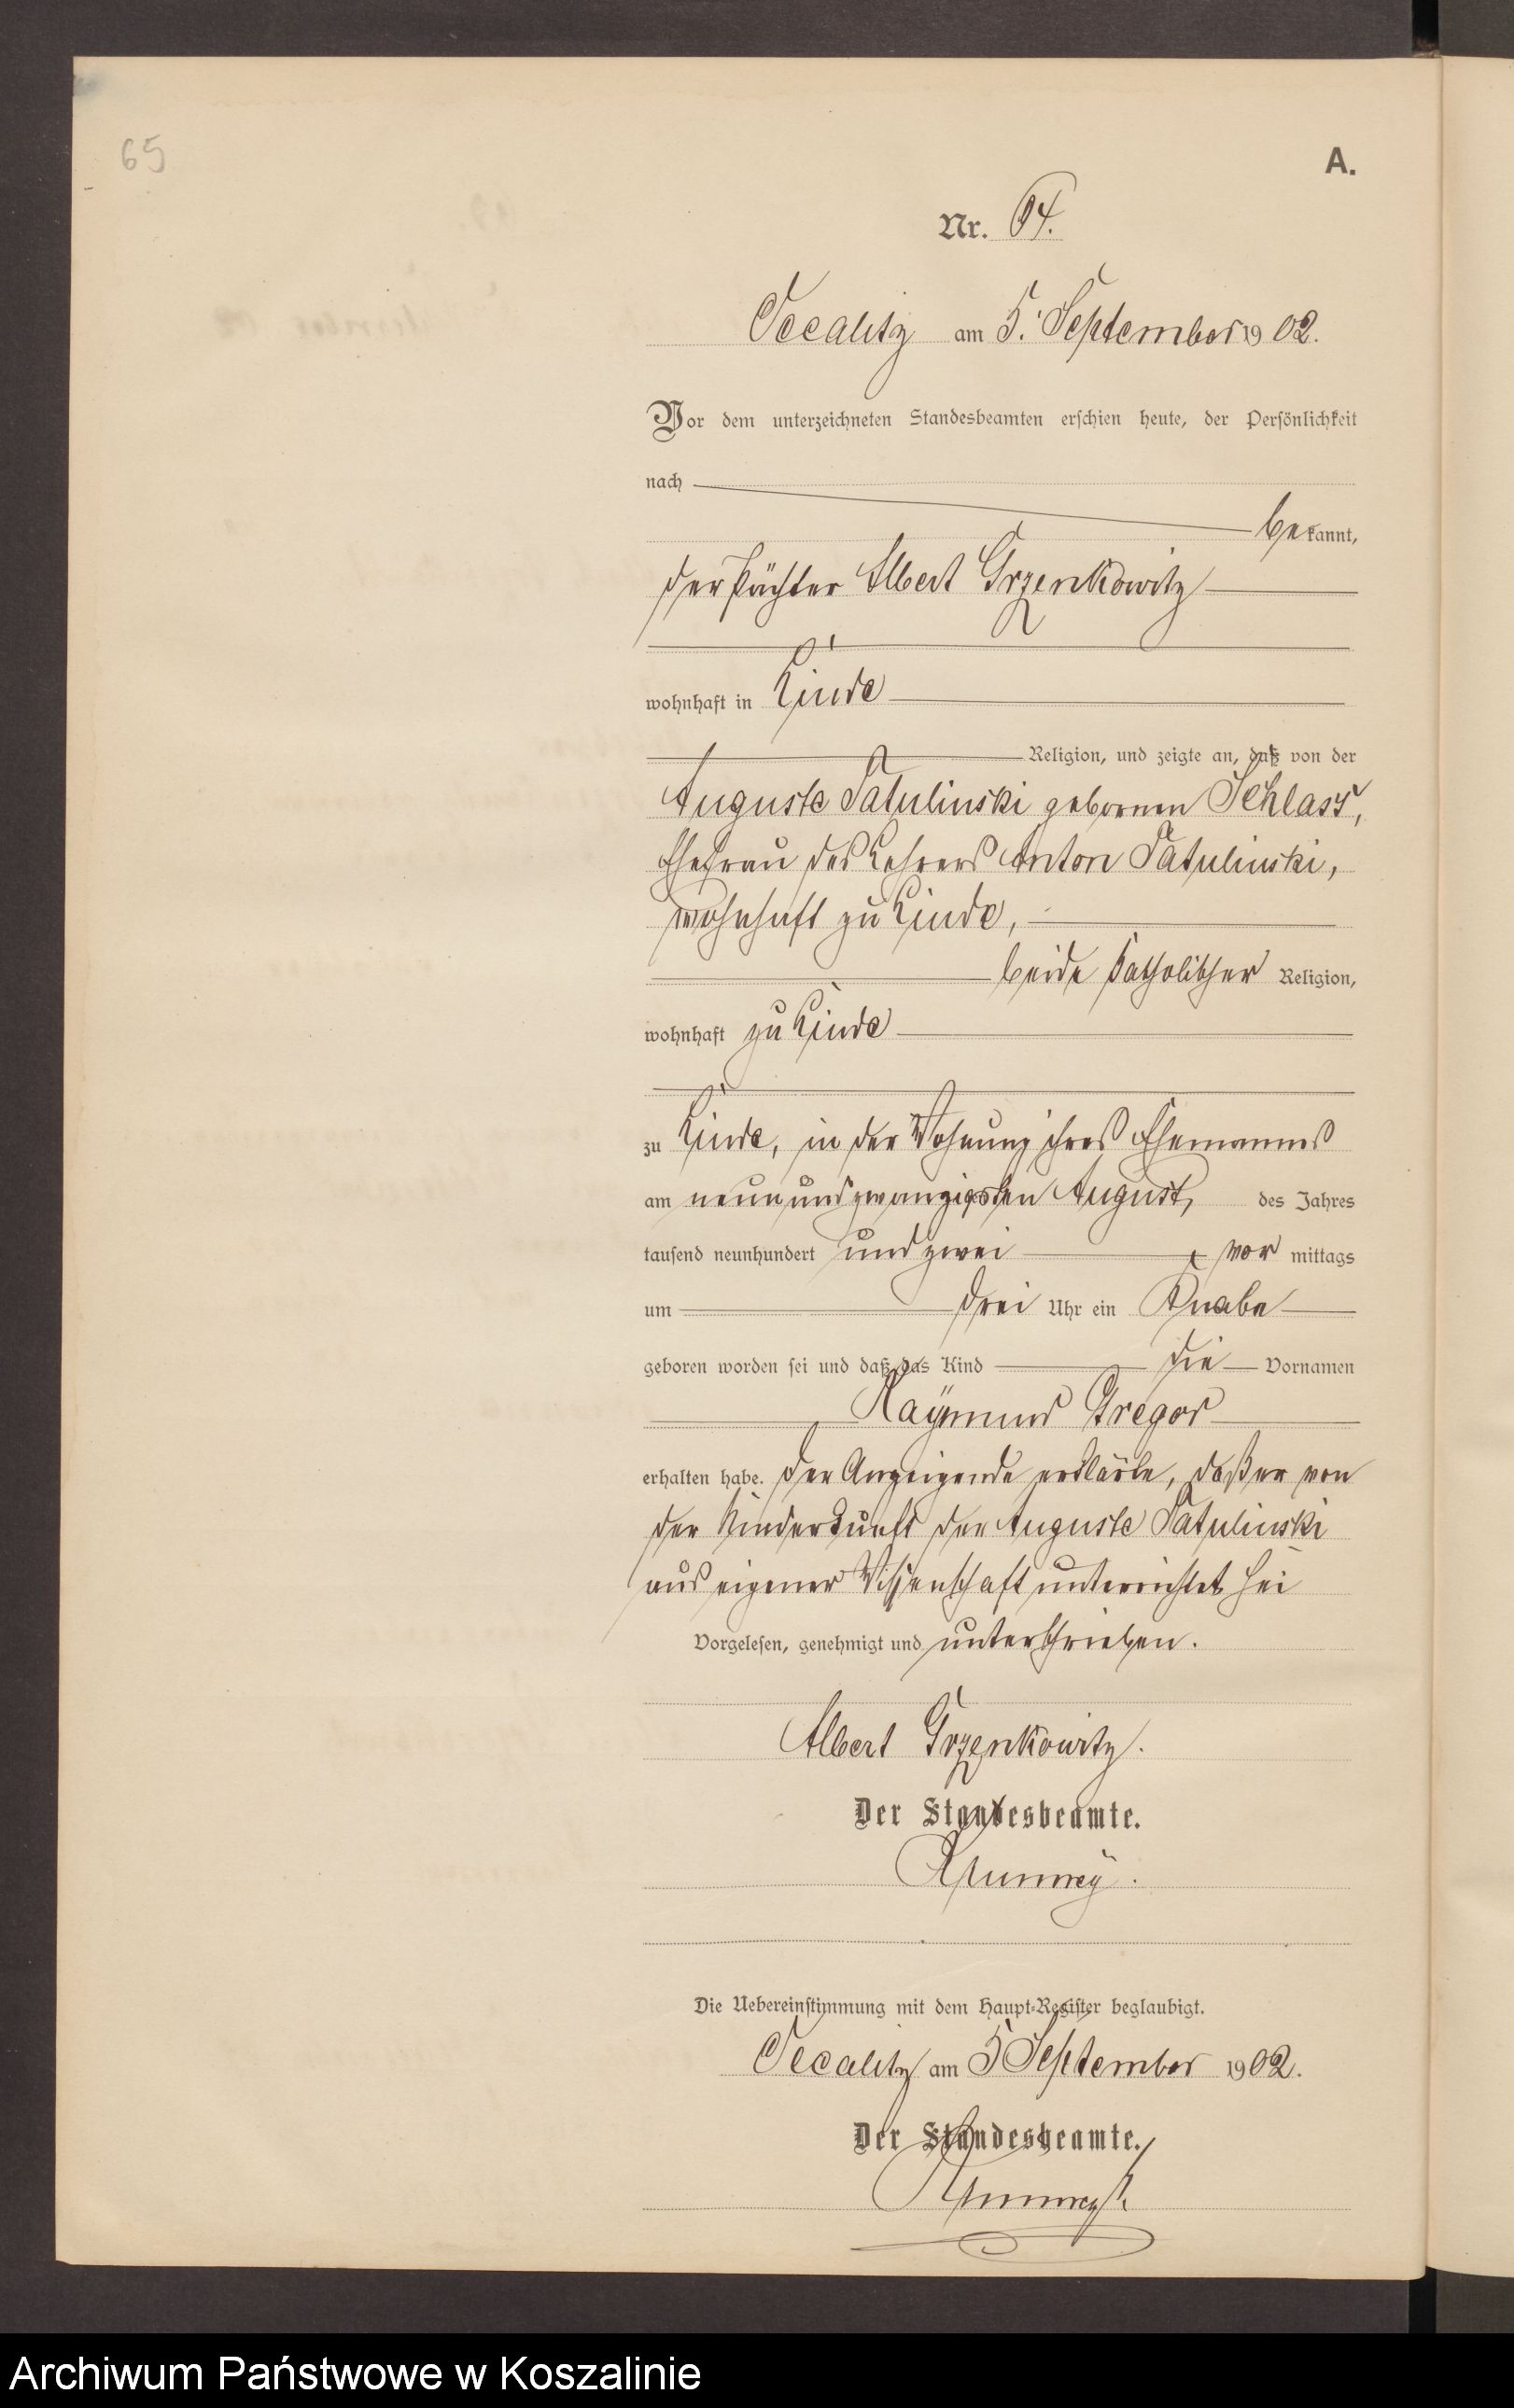 65
A.
Nr. 64.
Vecalitz am 5. September 1902.
Vor dem unterzeichneten Standesbeamten erschien heute, der Persönlichkeit
nach
bekannt,
der Pächter Albert Grzenkowitz
wohnhaft in Linde
Religion, und zeigte an, daß von der
Auguste Patulinski geborenen Schlass,
Ehefrau des Lehrers Anton Patulinski,
wohnhaft zu Linde,
beide katholischer Religion,
wohnhaft zu Linde
zu Linde, in der Wohnung ihres Ehemannes
am neunundzwanzigsten August, des Jahres
tausend neunhundert und zwei vor mittags
um drei Uhr ein Knabe
geboren worden sei und daß das Kind die Vornamen
Raymund Gregor
erhalten habe. Der Anzeigende erklärte, daß er von
der Niederkunft der Auguste Patulinski
aus eigener Wissenschaft unterrichtet sei
Vorgelesen, genehmigt und unterschrieben.
Albert Grzenkowitz.
Der Standesbeamte.
Die Uebereinstimmung mit dem Haupt-Register beglaubigt.
Vecalitz am 5 September 1902.
Der Standesbeamte.
Archiwum Państwowe w Koszalinie